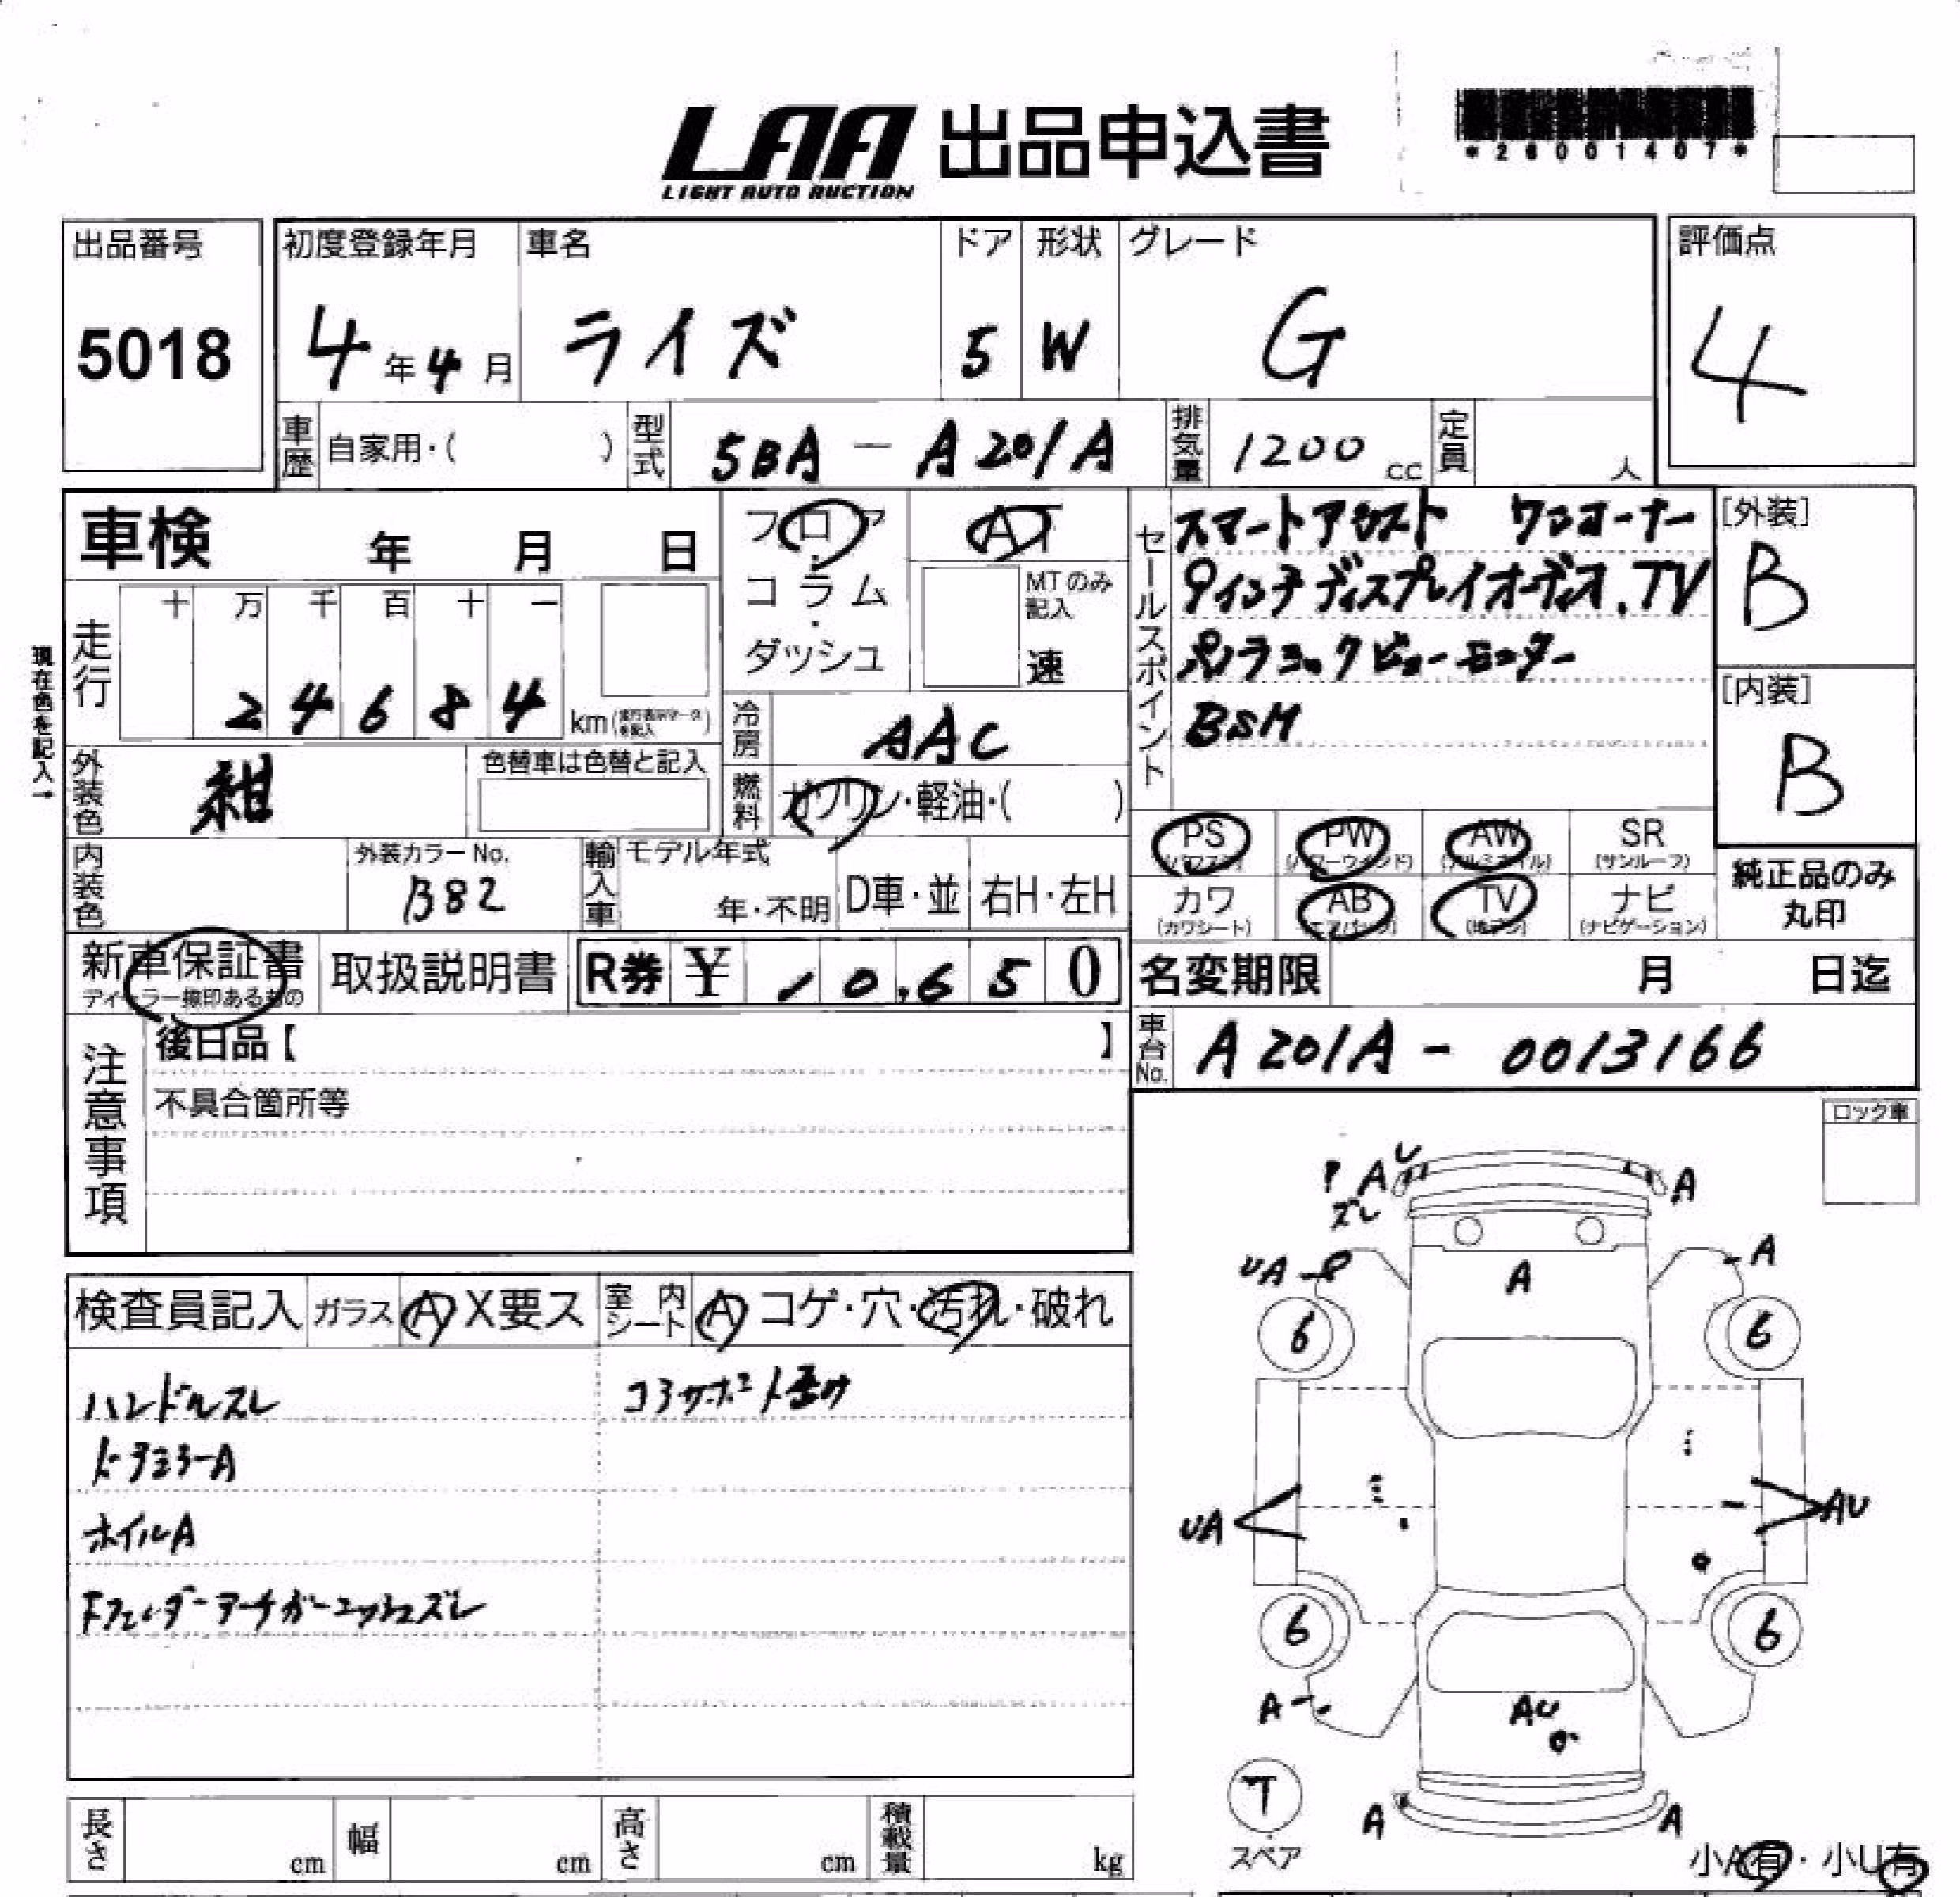 LAA 出品申込書
LIGHT AUTO AUCTION
*26001407*
出品番号 初度登録年月 車名 ドア 形状 グレード 評価点
5018 4年4月 ライズ 5 W G 4
車歴 自家用・( ) 型式 5BA-A201A 排気量 1200 cc 定員 人
車検 年 月 日
フロア・コラム・ダッシュ
AT
MTのみ記入
速
セールスポイント
スマートアシスト ワンオーナー
9インチディスプレイオーディオ.TV
パノラミックビューモニター
BSM
[外装]
B
[内装]
B
現在色を記入→
走行 十 万 千 百 十 一
24684 km(走行表示マークを記入)
冷房 AAC
外装色 紺 色替車は色替と記入
燃料 ガソリン・軽油・( )
内装色 外装カラーNo. B82
輸入車 モデル年式 年・不明 D車・並 右H・左H
PS (パワステ) PW (パワーウインド) AW (アルミホイル) SR (サンルーフ)
カワ (カワシート) AB (エアバッグ) TV (地デジ) ナビ (ナビゲーション)
純正品のみ丸印
新車保証書 ディーラー捺印あるもの 取扱説明書 R券 ¥ 10,650
名変期限 月 日迄
車台No. A201A-0013166
注意事項
後日品【 】
不具合箇所等
ロック車
検査員記入 ガラス A X要ス 室内シート A コゲ・穴・汚れ・破れ
ハンドルスレ
ドアミラーA
ホイルA
Fフェンダーアーチガーニッシュズレ
コアサポート歪み
A A
ズレ
UA A
A
6 6
UA AU
6 6
A AU
T
スペア
A A
小A有・小U有
長さ cm 幅 cm 高さ cm 積載量 kg